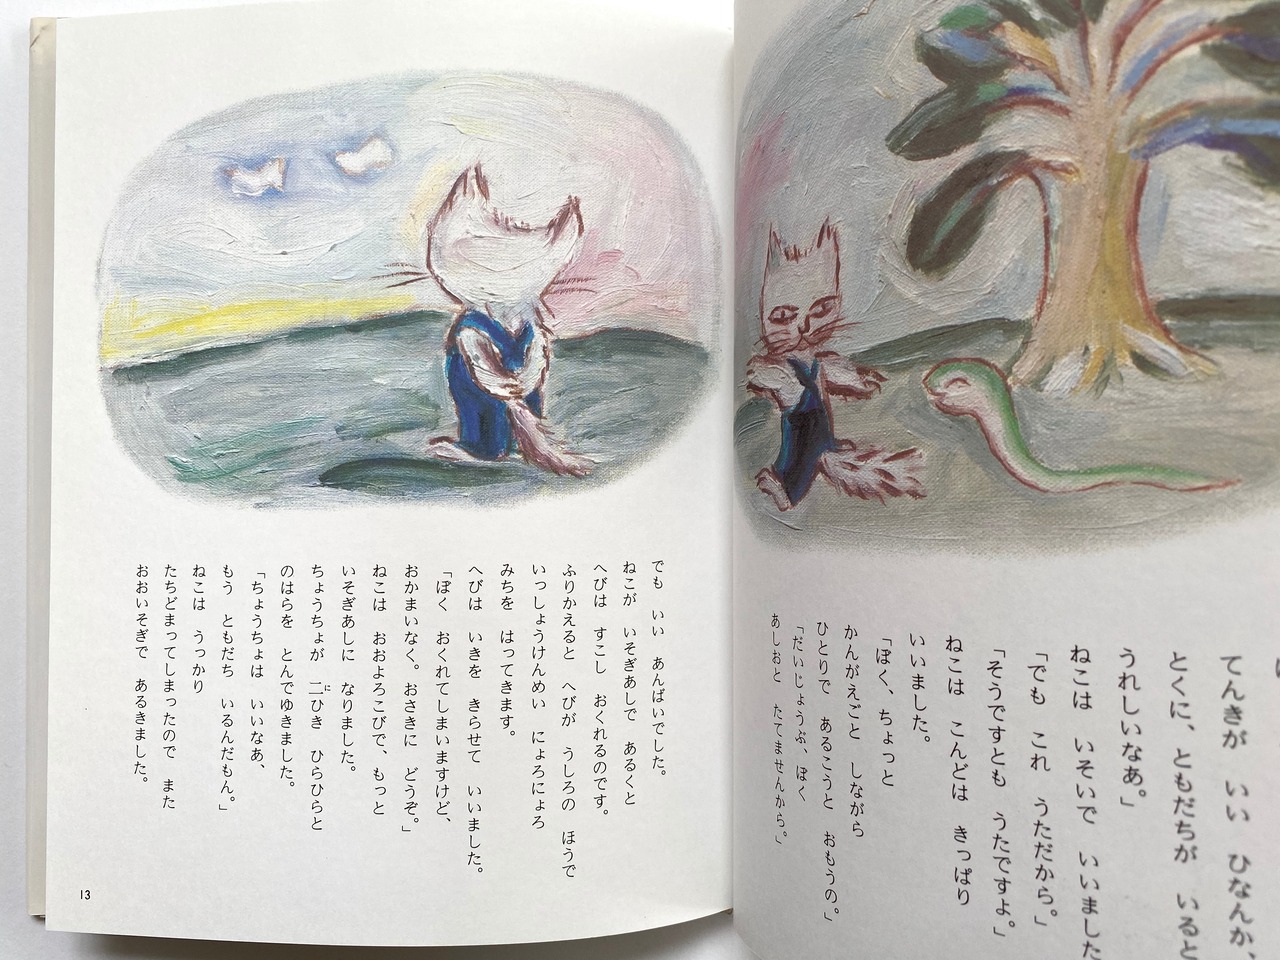 てんきが　いい　ひなんか、
とくに、ともだちが　いると
うれしいなあ。」
ねこは　いそいで　いいました
「でも　これ　うただから。」
「そうですとも　うたですよ。」
ねこは　こんどは　きっぱり
いいました。
「ぼく、ちょっと
かんがえごと　しながら
ひとりで　あるこうと　おもうの。」
「だいじょうぶ、ぼく
あしおと　たてませんから。」
でも　いい　あんばいでした。
ねこが　いそぎあしで　あるくと
へびは　すこし　おくれるのです。
ふりかえると　へびが　うしろの　ほうで
いっしょうけんめい　にょろにょろ
みちを　はってきます。
へびは　いきを　きらせて　いいました。
「ぼく　おくれてしまいますけど、
おかまいなく。おさきに　どうぞ。」
ねこは　おおよろこびで、もっと
いそぎあしに　なりました。
ちょうちょが　二ひき　ひらひらと
のはらを　とんでゆきました。
「ちょうちょは　いいなあ、
もう　ともだち　いるんだもん。」
ねこは　うっかり
たちどまってしまったので　また
おおいそぎで　あるきました。
13